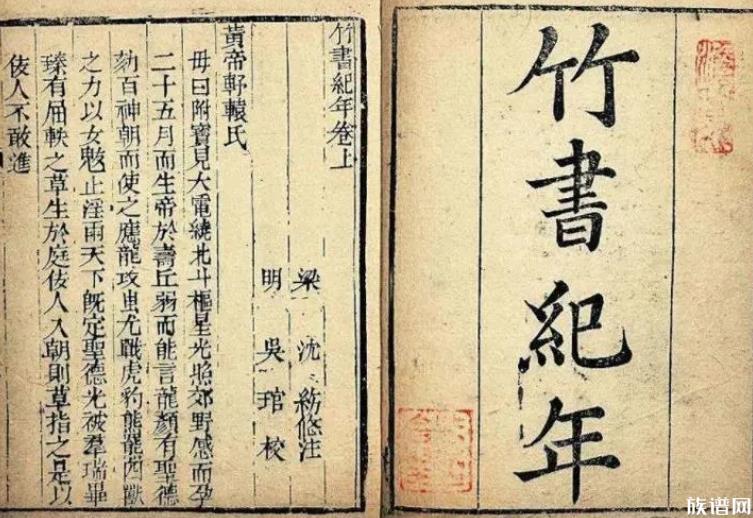 竹書紀年
竹書紀年卷上
梁 沈 約 注
明 吳 琯 校
黃帝軒轅氏
母曰附寶見大電繞北斗樞星光照郊野感而孕
二十五月而生帝於壽丘弱而能言龍顏有聖德
劾百神朝而使之應龍攻蚩尤戰虎豹熊羆四獸
之力以女魃止淫雨天下既定聖德光被羣瑞畢
臻有屈軼之草生於庭佞人入朝則草指之是以
佞人不敢進
族谱网